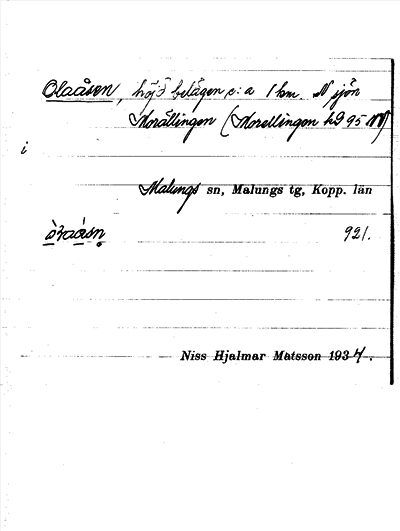 Olaåsen, höjd belägen c:a 1 km. N sjön
Morällingen (Morellingen hd 95 NV)
i
Malungs sn, Malungs tg, Kopp. län
921.
Niss Hjalmar Matsson 1934.